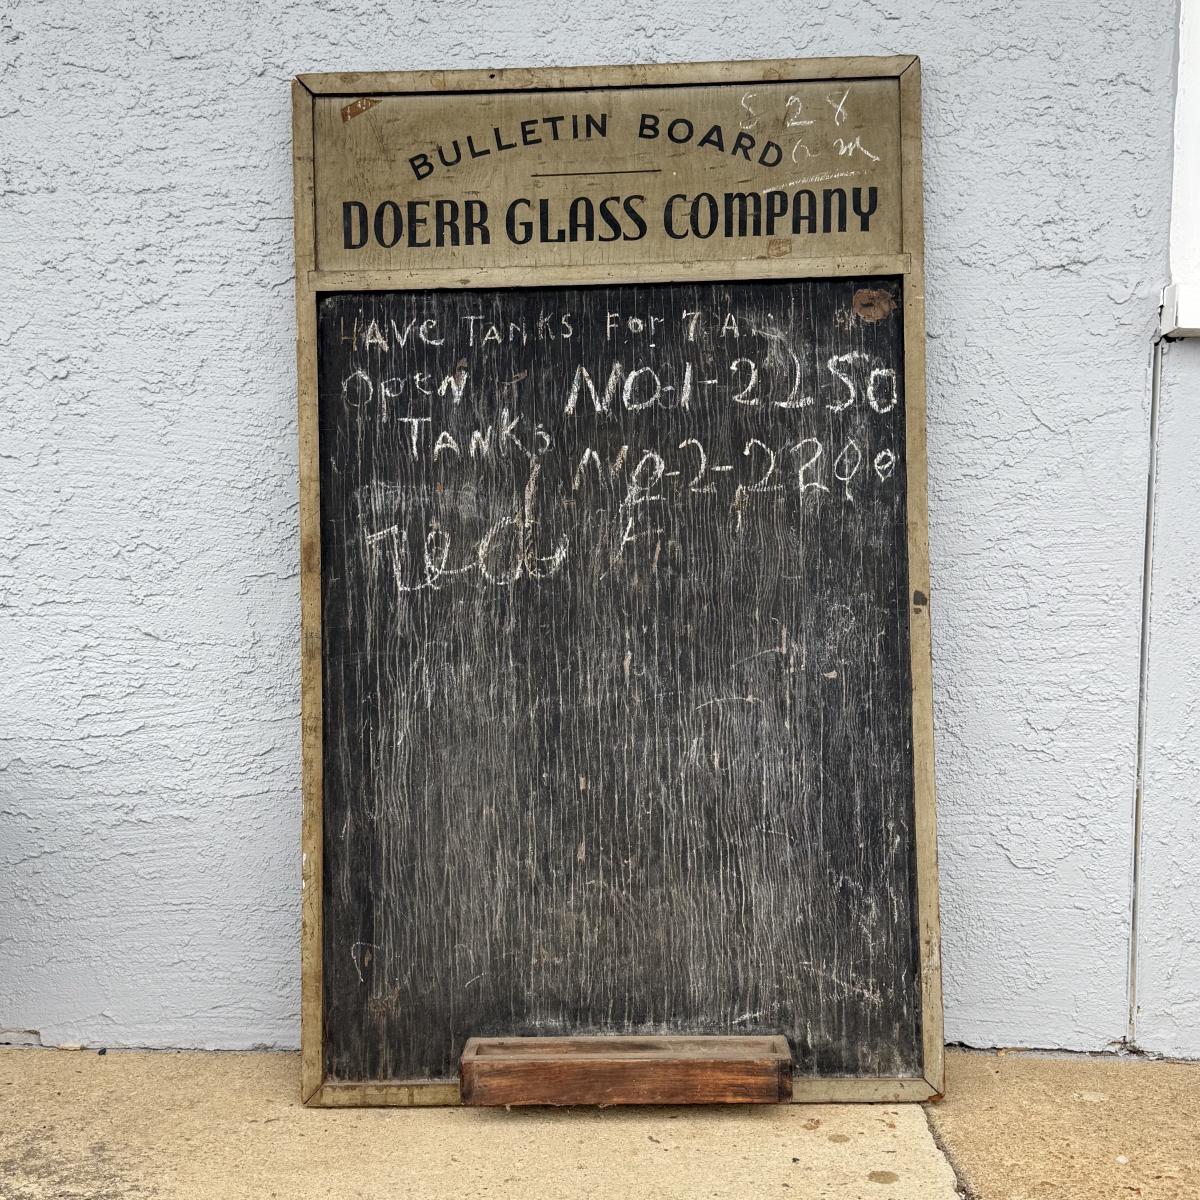 BULLETIN BOARD
5 28
am
DOERR GLASS COMPANY
HAVE TANKS For 7 A.
OpeN NO.1-2250
TANKS NO-2-2200
red